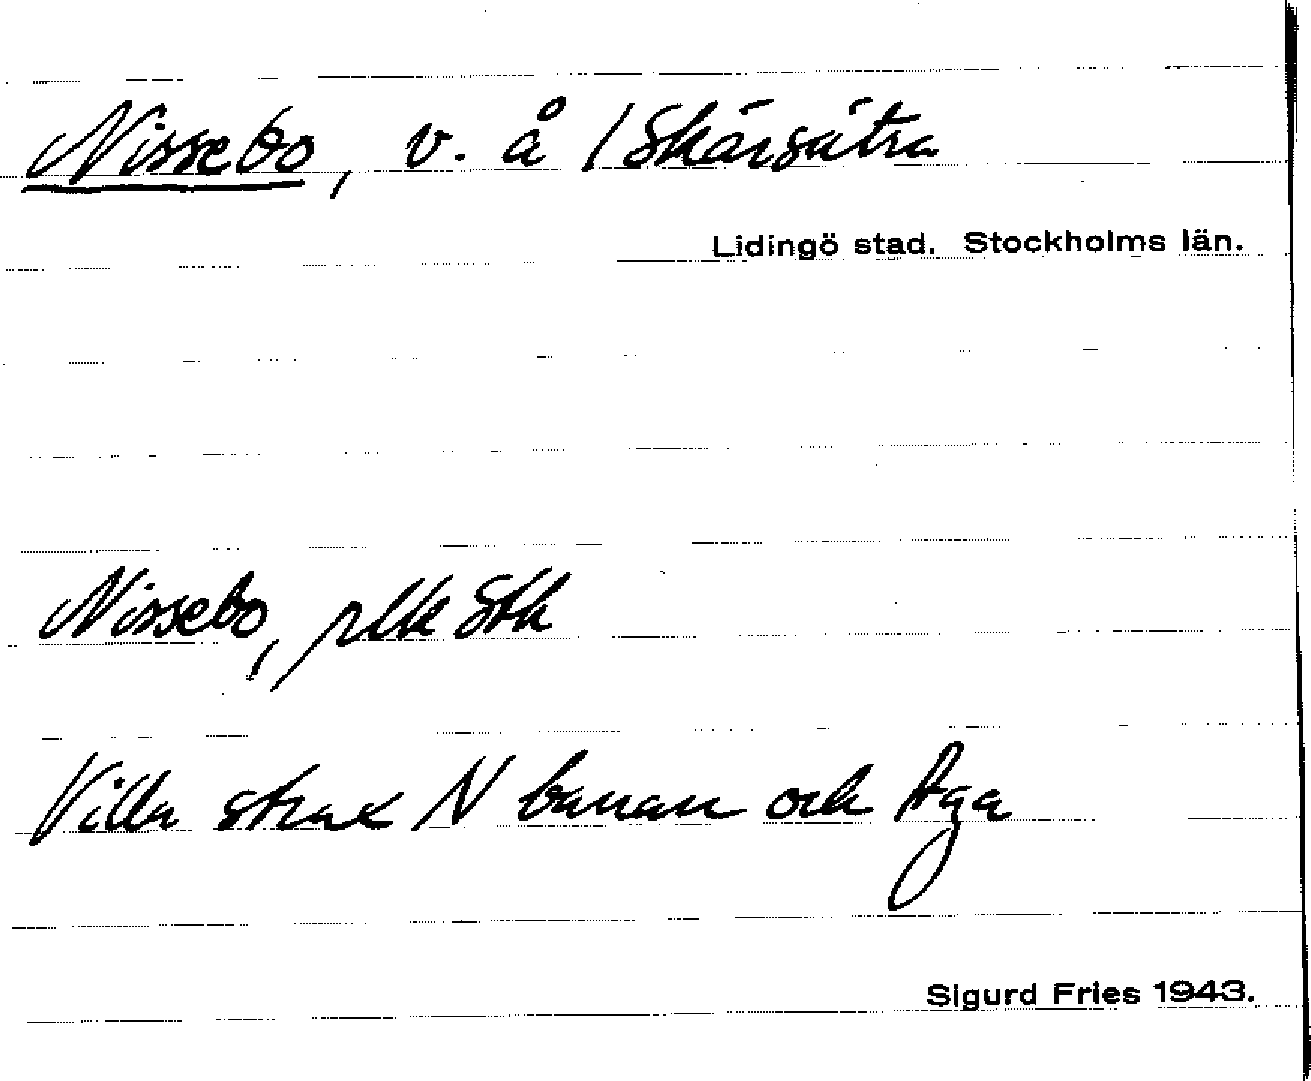 Nissebo, v. å / Skärsätra
Lidingö stad. Stockholms län.
Nissebo, plk Stk
Villa strax N banan och Aga
Sigurd Fries 1943.